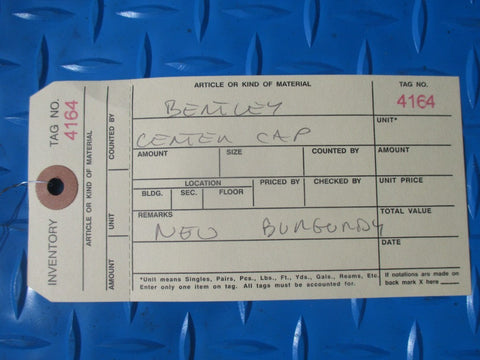 INVENTORY TAG NO. 4164
ARTICLE OR KIND OF MATERIAL
AMOUNT UNIT COUNTED BY
ARTICLE OR KIND OF MATERIAL TAG NO.
BENTLEY 4164
CENTER CAP UNIT*
AMOUNT SIZE COUNTED BY
LOCATION PRICED BY CHECKED BY UNIT PRICE
BLDG. SEC. FLOOR
REMARKS TOTAL VALUE
NEW BURGUNDY
DATE
*Unit means Singles, Pairs, Pcs., Lbs., Ft., Yds., Gals., Reams, Etc.
Enter only one item on tag. All tags must be accounted for.
If notations are made on
back mark X here